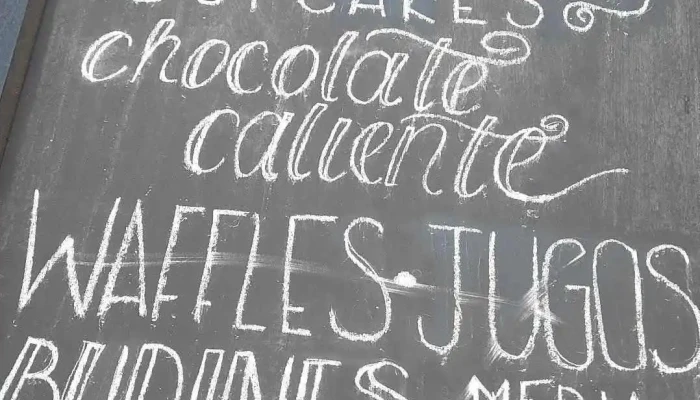 CUPCAKES
chocolate
caliente
WAFFLES·JUGOS
BUDINES MEDIA